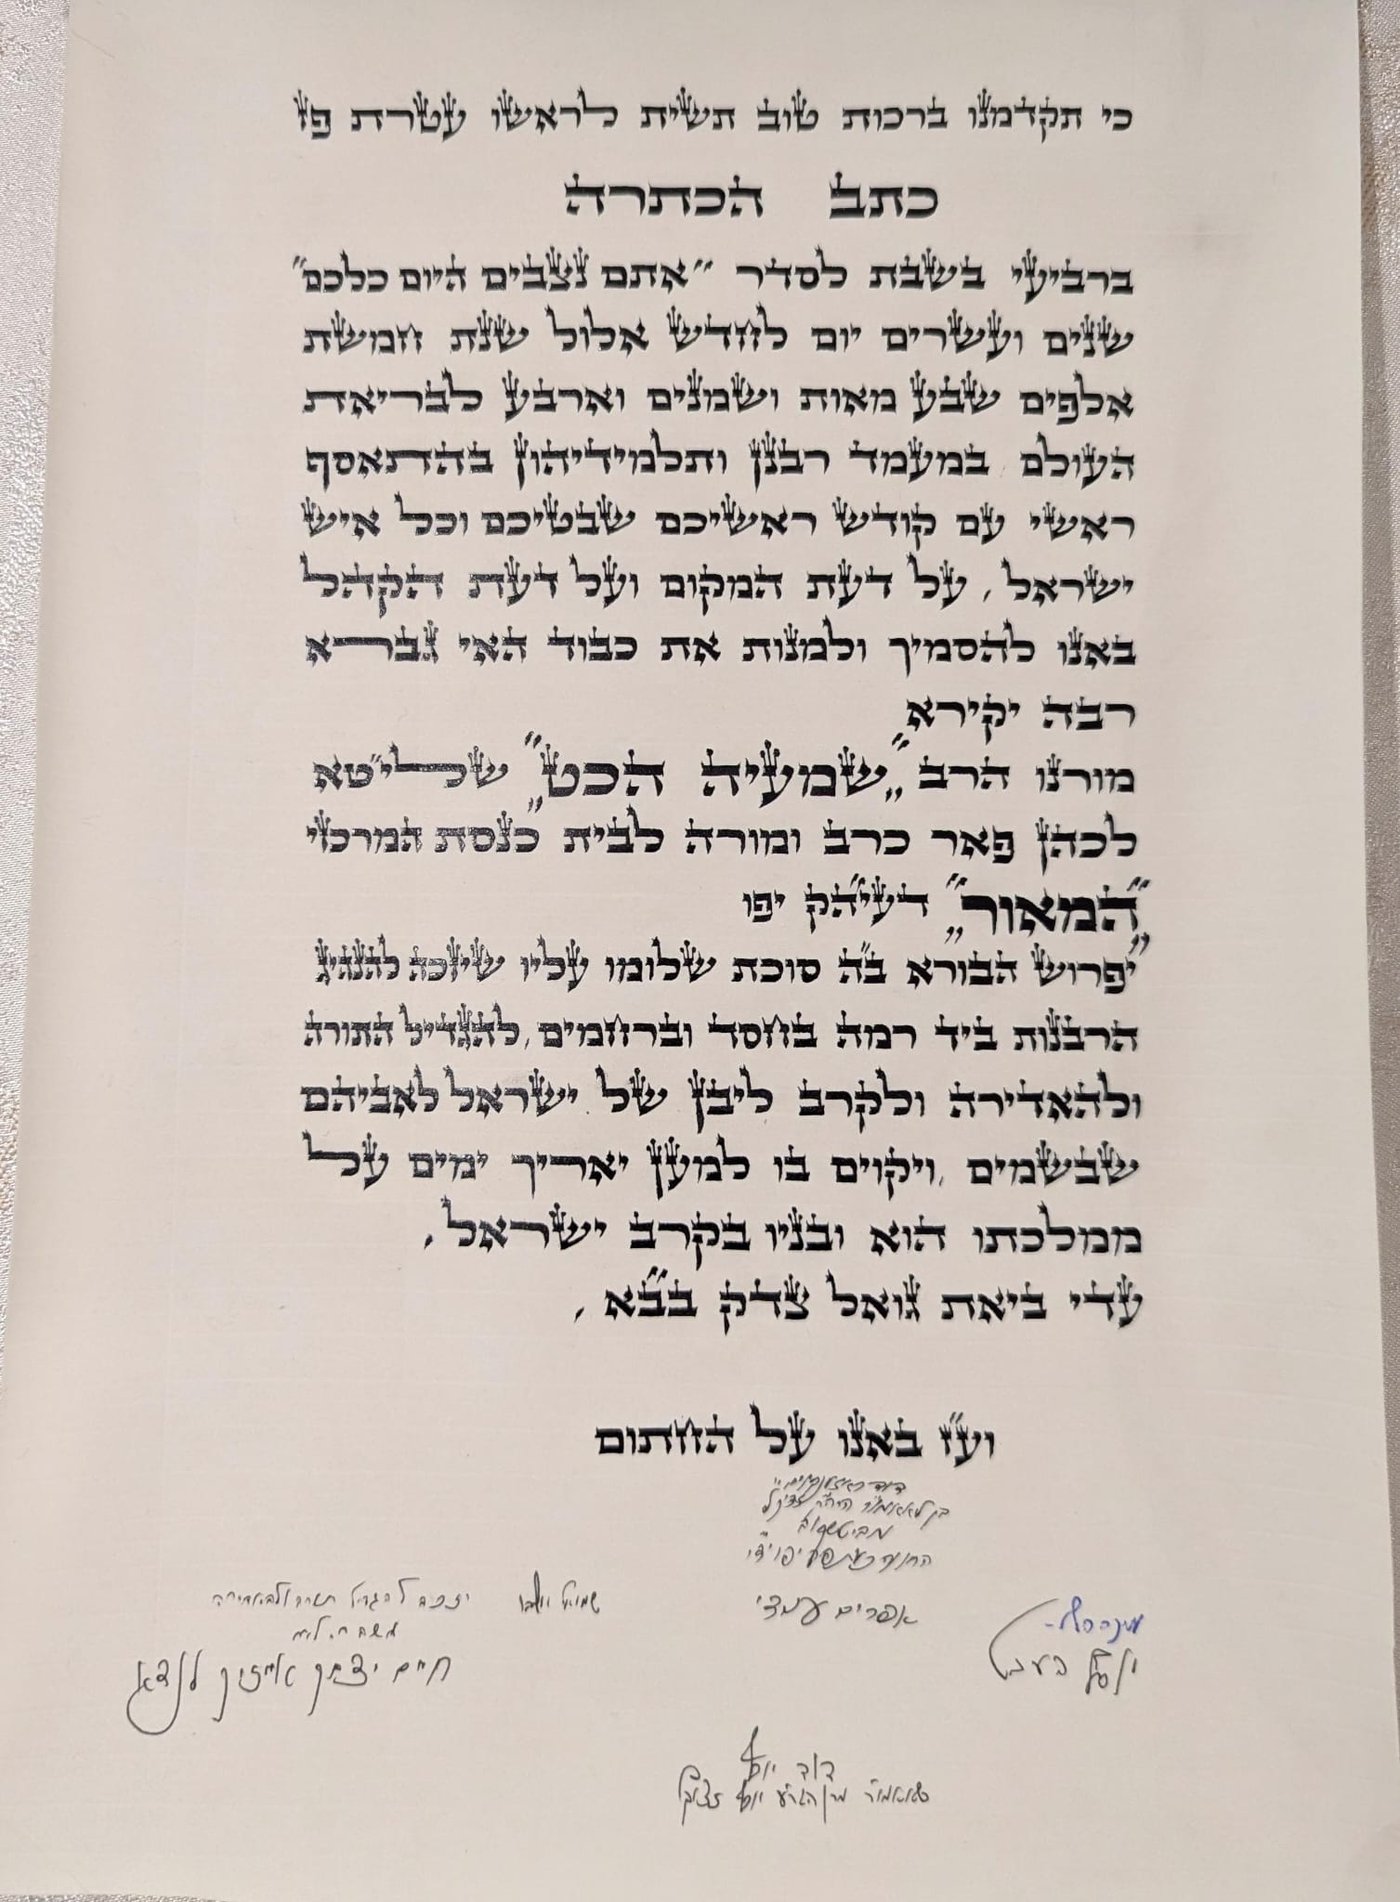 כי תקדמנו ברכות טוב תשית לראשו עטרת פז
כתב הכתרה
ברביעי בשבת לסדר "אתם נצבים היום כלכם"
שנים ועשרים יום לחדש אלול שנת חמשת
אלפים שבע מאות ושמנים וארבע לבריאת
העולם במעמד רבנן ותלמידיהון בהתאסף
ראשי עם קודש ראשיכם שבטיכם וכל איש
ישראל, על דעת המקום ועל דעת הקהל
באנו להסמיך ולמנות את כבוד האי גברא
רבה יקירא
מורנו הרב "שמעיה הכט" שליט"א
לכהן פאר כרב ומורה לבית כנסת המרכזי
"המאור" דעיה"ק יפו
יפרוש הבורא ב"ה סוכת שלומו עליו שיזכה להנהיג
הרבנות ביד רמה בחסד וברחמים, להגדיל התורה
ולהאדירה ולקרב ליבן של ישראל לאביהם
שבשמים, ויקוים בו למען יאריך ימים על
ממלכתו הוא ובניו בקרב ישראל,
עדי ביאת גואל צדק בב"א,
וע"ז באנו על החתום
דוד
אפרים עמדי
שמואל
חיים יצחק אייזיק לנדא
יוסף
דוד יוסף